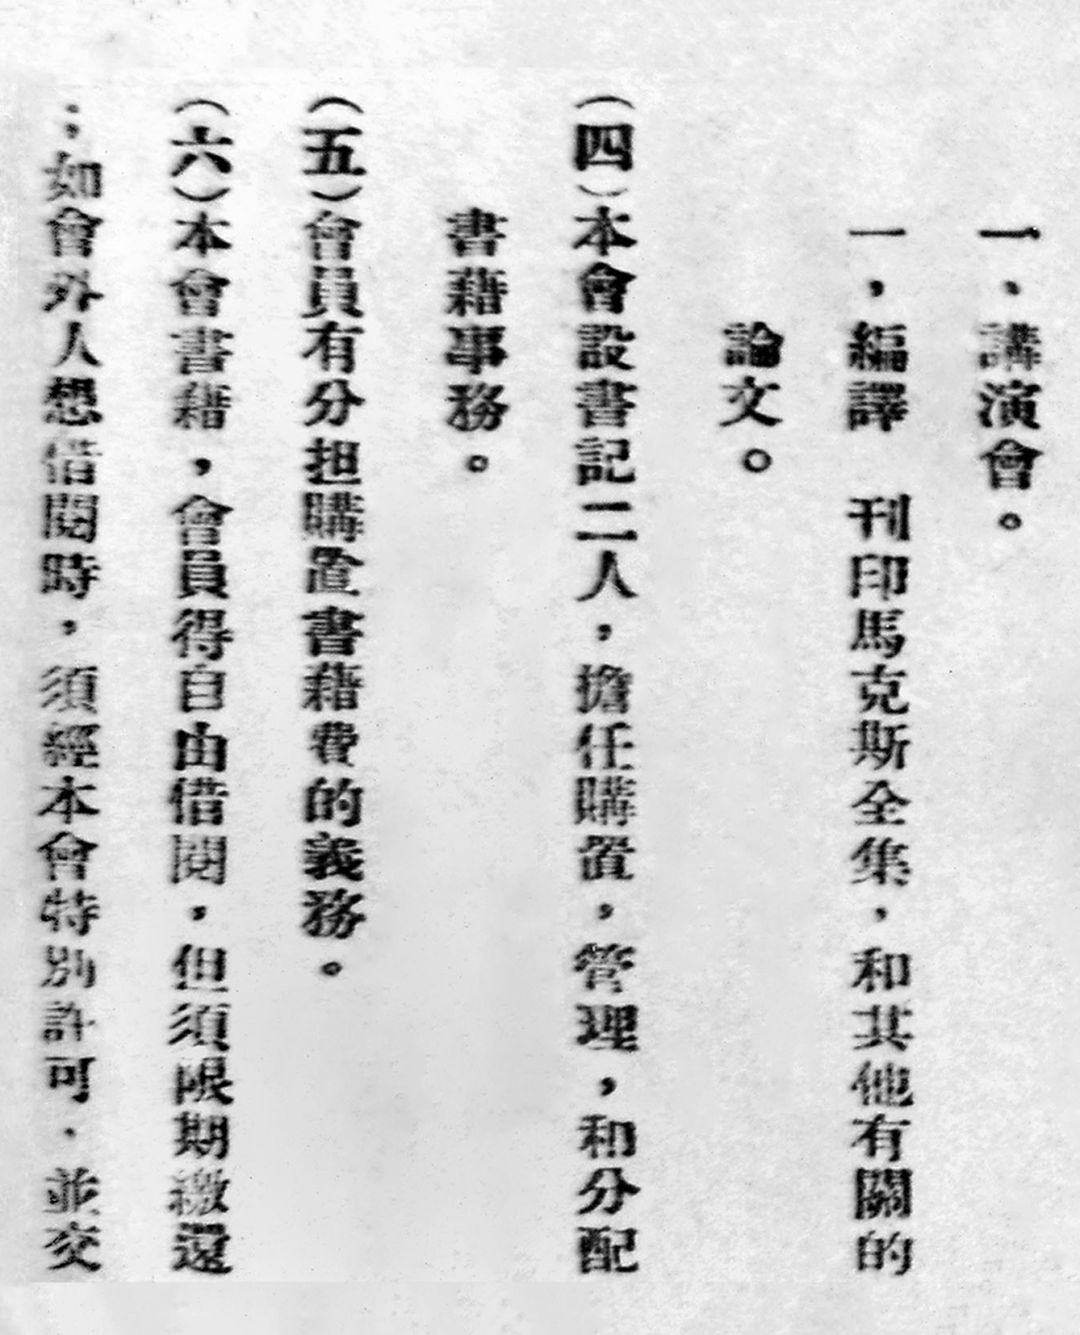 一、講演會。
一，編譯　刊印馬克斯全集，和其他有關的
論文。
(四)本會設書記二人，擔任購置，管理，和分配
書藉事務。
(五)會員有分担購置書藉費的義務。
(六)本會書藉，會員得自由借閱，但須限期繳還
；如會外人想借閱時，須經本會特別許可．並交